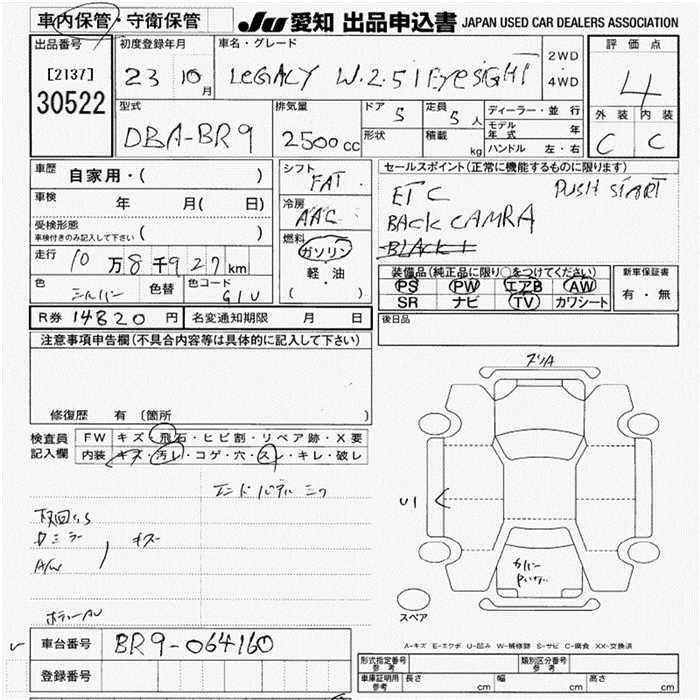 車内保管・守衛保管 JU 愛知 出品申込書 JAPAN USED CAR DEALERS ASSOCIATION
出品番号 初度登録年月 車名・グレード 2WD 評価点
[2137] 23 10月 LEGACY W.2.5i EyeSIGHT 4WD 4
30522
型式 排気量 ドア 5 定員 5人 ディーラー・並行 外装 内装
DBA-BR9 2500cc 形状 積載 kg モデル年式 年 C C
ハンドル 左・右
車歴 自家用・( ) シフト FAT セールスポイント(正常に機能するものに限ります)
車検 年 月( 日) 冷房 AAC ETC PUSH START
受検形態 BACK CAMRA
車検付きのみ記入して下さい ( ) 燃料 ガソリン BLACK
走行 10万8千927km 軽・油 装備品(純正品に限り○をつけてください) 新車保証書
色 シルバー 色替 色コード G1U ( ) PS PW エアB AW 有・無
SR ナビ TV カワシート
R券 14820円 名変通知期限 月 日 後日品
注意事項申告欄(不具合内容等は具体的に記入して下さい)
修復歴 有 〔箇所 〕
検査員 FW キズ・飛石・ヒビ割・リペア跡・X要
記入欄 内装 キズ・汚レ・コゲ・穴・スレ・キレ・破レ
U1
ミラー キズ
A/W
スペア
A-キズ E-エクボ U-凹み W-補修跡 S-サビ C-腐食 XX-交換済
車台番号 BR9-064160
登録番号
形式指定番号 参考 類別区分番号 参考
車庫証明用 参考 長さ cm 幅 cm 高さ cm